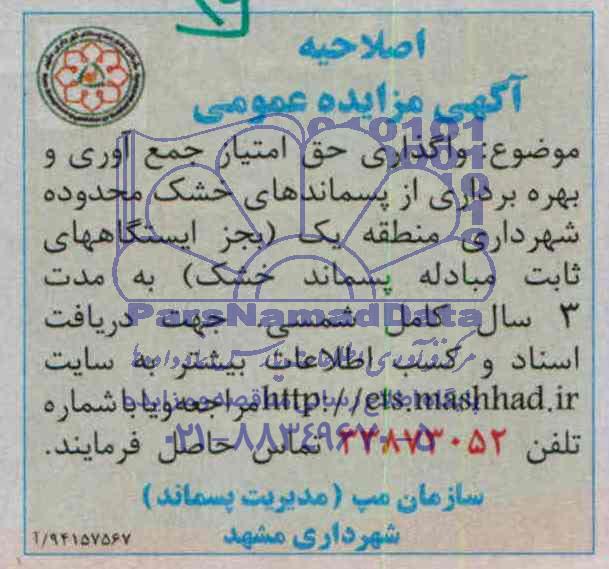 اصلاحیه
آگهی مزایده عمومی
موضوع: واگذاری حق امتیاز جمع آوری و
بهره برداری از پسماندهای خشک محدوده
شهرداری منطقه یک (بجز ایستگاههای
ثابت مبادله پسماند خشک) به مدت
ParsNamadData
۳ سال کامل شمسی. جهت دریافت
اسناد و کسب اطلاعات بیشتر به سایت
http://ets.mashhad.ir مراجعه ویا با شماره
تلفن تماس حاصل فرمایند.
۰۲۱-۸۸۳۴۹۶۷۰-۵
سازمان مپ (مدیریت پسماند)
شهرداری مشهد
۹۴۱۵۷۵۶۷/آ